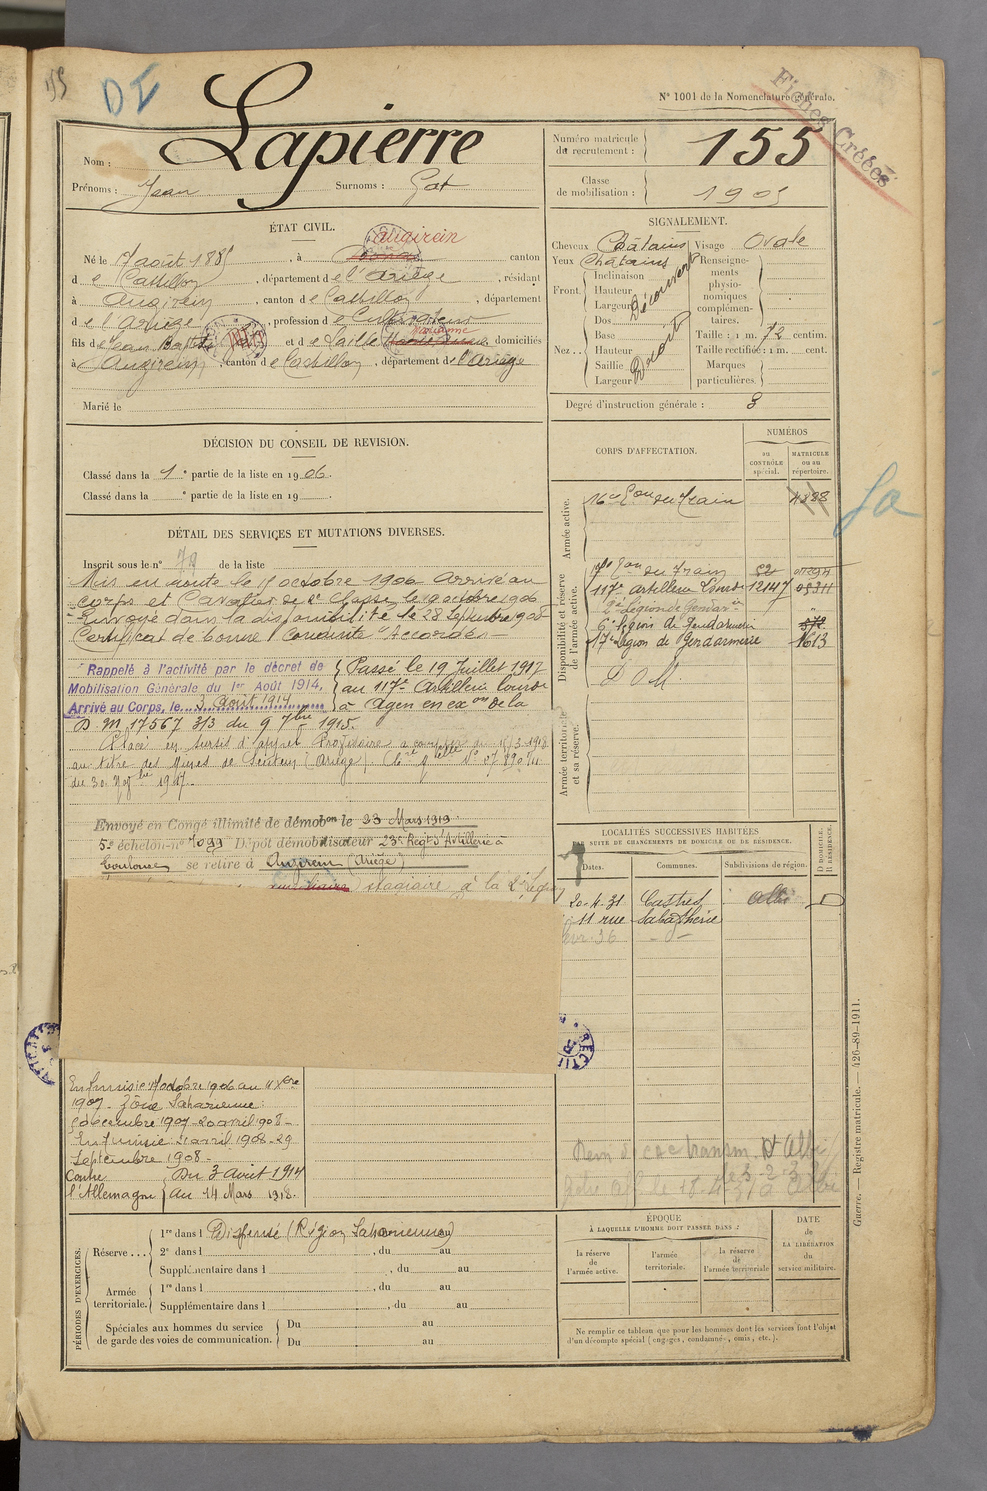 155
DI
N° 1001 de la Nomenclature générale.
Fiches Créées
Nom : Lapierre
Prénoms : Jean Surnoms : Gat
Numéro matricule du recrutement : 155
Classe de mobilisation : 1905
ÉTAT CIVIL.
Né le 17 août 1885, à Augirein canton
de Castillon, département de l'Ariège, résidant
à Augirein, canton de Castillon, département
de l'Ariège, profession de Cultivateur
fils de Jean Baptiste et de Laille Marianne domiciliés
à Augirein, canton de Castillon, département de l'Ariège
Marié le
SIGNALEMENT.
Cheveux Châtains Visage Ovale
Yeux Châtains
Front Inclinaison Hauteur Largeur Découvert
Nez Dos Base Hauteur Saillie Largeur Droit
Renseignements physionomiques complémentaires.
Taille : 1 m. 72 centim.
Taille rectifiée : 1 m. cent.
Marques particulières.
Degré d'instruction générale : 3
DÉCISION DU CONSEIL DE REVISION.
Classé dans la 1e partie de la liste en 1906.
Classé dans la e partie de la liste en 19
DÉTAIL DES SERVICES ET MUTATIONS DIVERSES.
Inscrit sous le n° 79 de la liste
Mis en route le 9 octobre 1906 Arrivé au
corps et Cavalier de 2e classe le 10 octobre 1906
Envoyé dans la disponibilité le 28 Septembre 1908
Certificat de bonne Conduite "Accordé"
Rappelé à l'activité par le décret de
Mobilisation Générale du 1er Août 1914,
Arrivé au Corps, le 3 Août 1914
Passé le 19 Juillet 1917
au 117e Artillerie lourde
à Agen en exon de la
D. M. 17567 3/3 du 9 7bre 1915.
Placé en sursis d'appel Provisoire à compter du 15/3 1918
au titre des Mines de Sentein (Ariège).
du 30 Nov bre 1917.
Envoyé en Congé illimité de démobon le 23 Mars 1919
5e échelon n° 1099 Dépôt démobilisateur 23e Régt d'Artillerie à
Toulouse se retire à Augirein (Ariège)
stagiaire à la 2e Légion
CORPS D'AFFECTATION.
NUMÉROS
AU CONTRÔLE spécial.
MATRICULE ou au répertoire.
Armée active.
16e Eon du Train 4388
Disponibilité et réserve de l'armée active.
17e Eon du Train
117e Artillerie Lourde 12147 05311
2e Légion de Gendarie
6e légion de Gendarmerie 572
17e légion de Gendarmerie 1613
D O M.
Armée territoriale et sa réserve.
Sa
LOCALITÉS SUCCESSIVES HABITÉES
PAR SUITE DE CHANGEMENTS DE DOMICILE OU DE RÉSIDENCE.
Dates. Communes. Subdivisions de région. D DOMICILE. R RÉSIDENCE.
20-4-31 Castres Albi D
11 rue Sabatherie
En Tunisie 17 octobre 1906 au 4 Xbre
1907 - Zône Saharienne :
5 décembre 1907 - 20 avril 1908 -
En Tunisie : 21 avril 1908 - 29
Septembre 1908 -
Contre l'Allemagne
Du 3 Août 1914
au 14 Mars 1918.
PÉRIODES D'EXERCICES.
Réserve ... 1re dans l Dispensé (Région Saharienne) au
2e dans l , du au
Supplémentaire dans l , du au
Armée territoriale. 1re dans l , du au
Supplémentaire dans l , du au
Spéciales aux hommes du service de garde des voies de communication. Du au
Du au
ÉPOQUE
À LAQUELLE L'HOMME DOIT PASSER DANS :
la réserve de l'armée active.
l'armée territoriale.
la réserve de l'armée territoriale
DATE de LA LIBÉRATION du service militaire.
Ne remplir ce tableau que pour les hommes dont les services font l'objet
d'un décompte spécial (engagés, condamnés, omis, etc.).
Guerre. — Registre matricule. — 426-89-1911.